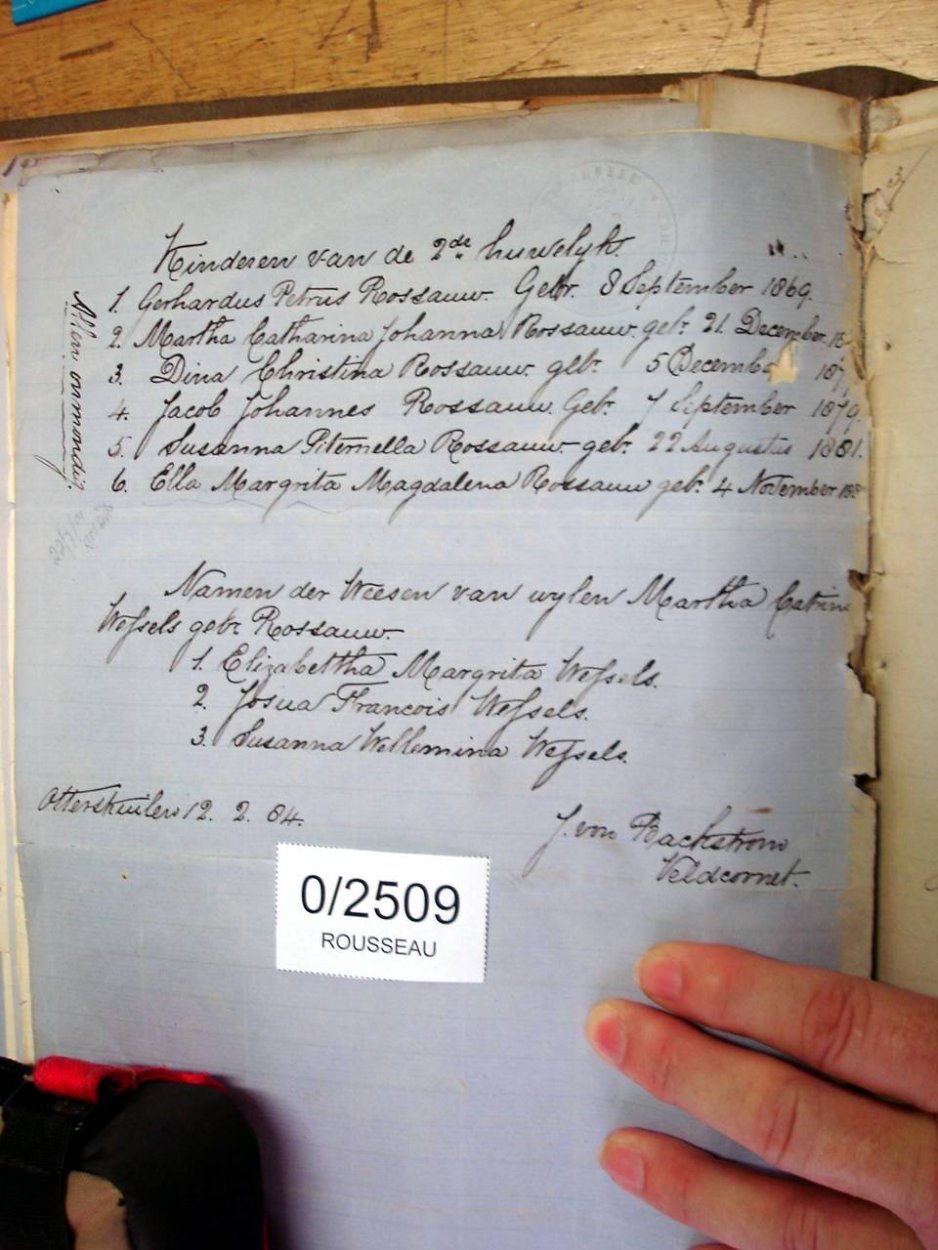 Kinderen van de 2de huwelyk.
1. Gerhardus Petrus Rossauw. Gebr. 8 September 1869.
2. Martha Catharina Johanna Rossauw. gebr. 21 December 18
3. Dina Christina Rossauw. gebr. 5 Decembe 187
4. Jacob Johannes Rossauw. Gebr. 7 September 1879.
5. Susanna Piternella Rossauw. gebr. 22 Augustus 1881.
6. Ella Margrita Magdalena Rossauw gebr. 4 November 188
Allen onmondig.
Namen der Weesen van wylen Martha Catrina
Wessels gebr. Rossauw.
1. Elizabettha Margrita Wessels.
2. Josua Francois Wessels.
3. Susanna Wellemina Wessels.
Otterskuilen 12. 2. 84.
J. von Backstrom
Veldcornet.
0/2509
ROUSSEAU